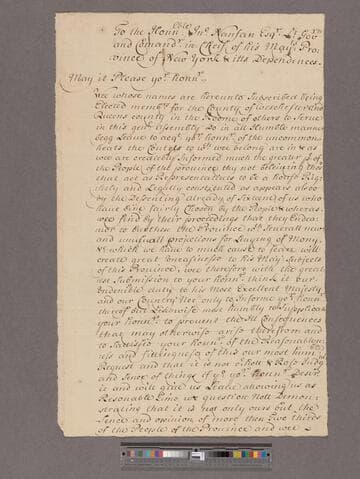 To the Honn.ble Jno. Nanfan Esqr. Lt. Govr.
and Comandr. in Cheif of his Mays. Pro
vince of New York & itts Dependences.
May it Please yor. honnr.
Wee whose names are hereunto Subscribed being
Elected membrs. for the County of Westchester and
Queens county in the Roome of others to Serve
in this genl. Assembly Do in all Humble manner
begg Leave to acqt. yor. honnr. of the uncommon
heats the Countys to wch. wee belong are in & as
wee are credebly Informed much the greater pt. of
the People of the province they not esteeming those
that act as Representatives to be a house Righ
thely and Legally constituted as appears alsoo
by the Desserting already of Sixteen of us who
have bine fairly Chosen by the People & whereas
wee find by their proceedings that they Endea
vor to burthen the Province wth. severall new
and unusuall projections for Leveying of Mony
& which we have to much cause to feare will
create great uneasinesse to his Mays. Subjects
of this Province, wee therefore with the great
est Submission to your honnr. think it our
indispensible duty to his Most Excellent Majesty
and our Country Not only to Informe yor. honnr.
thereof but Likewise most humbly to Supplicate
your Honnr. to prevent the Ill Consequences
that may otherwise arise therefrom and
to sattisfie your Honnr. of the Reasonable
ness and fittingness of this our most humble
Request and that it is not
and Sence of things if yor. honnr. Desir
it and will give us Leave alowing us a
Resonable time wee question Nott Demon
strating that it is Not only ours but the
Sence and opinion of more then two thirds
of the People of the Province and wee